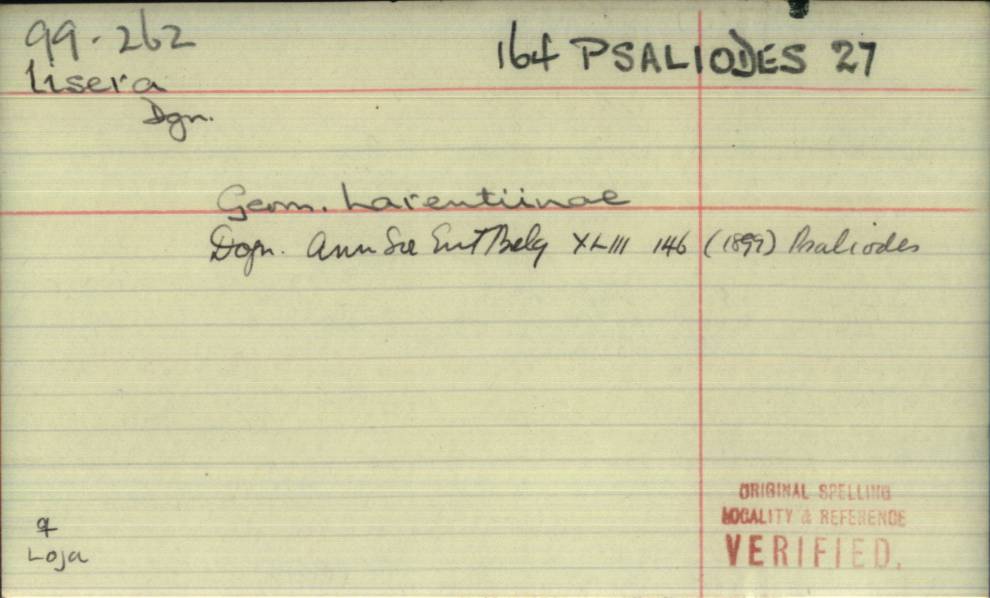 99-262
164 PSALIODES 27
lisera
Dgn.
Geom. Larentiinae
Dogn. Ann Soc Ent Belg XLIII 146 (1899) Psaliodes
♀
Loja
ORIGINAL SPELLING
LOCALITY & REFERENCE
VERIFIED.